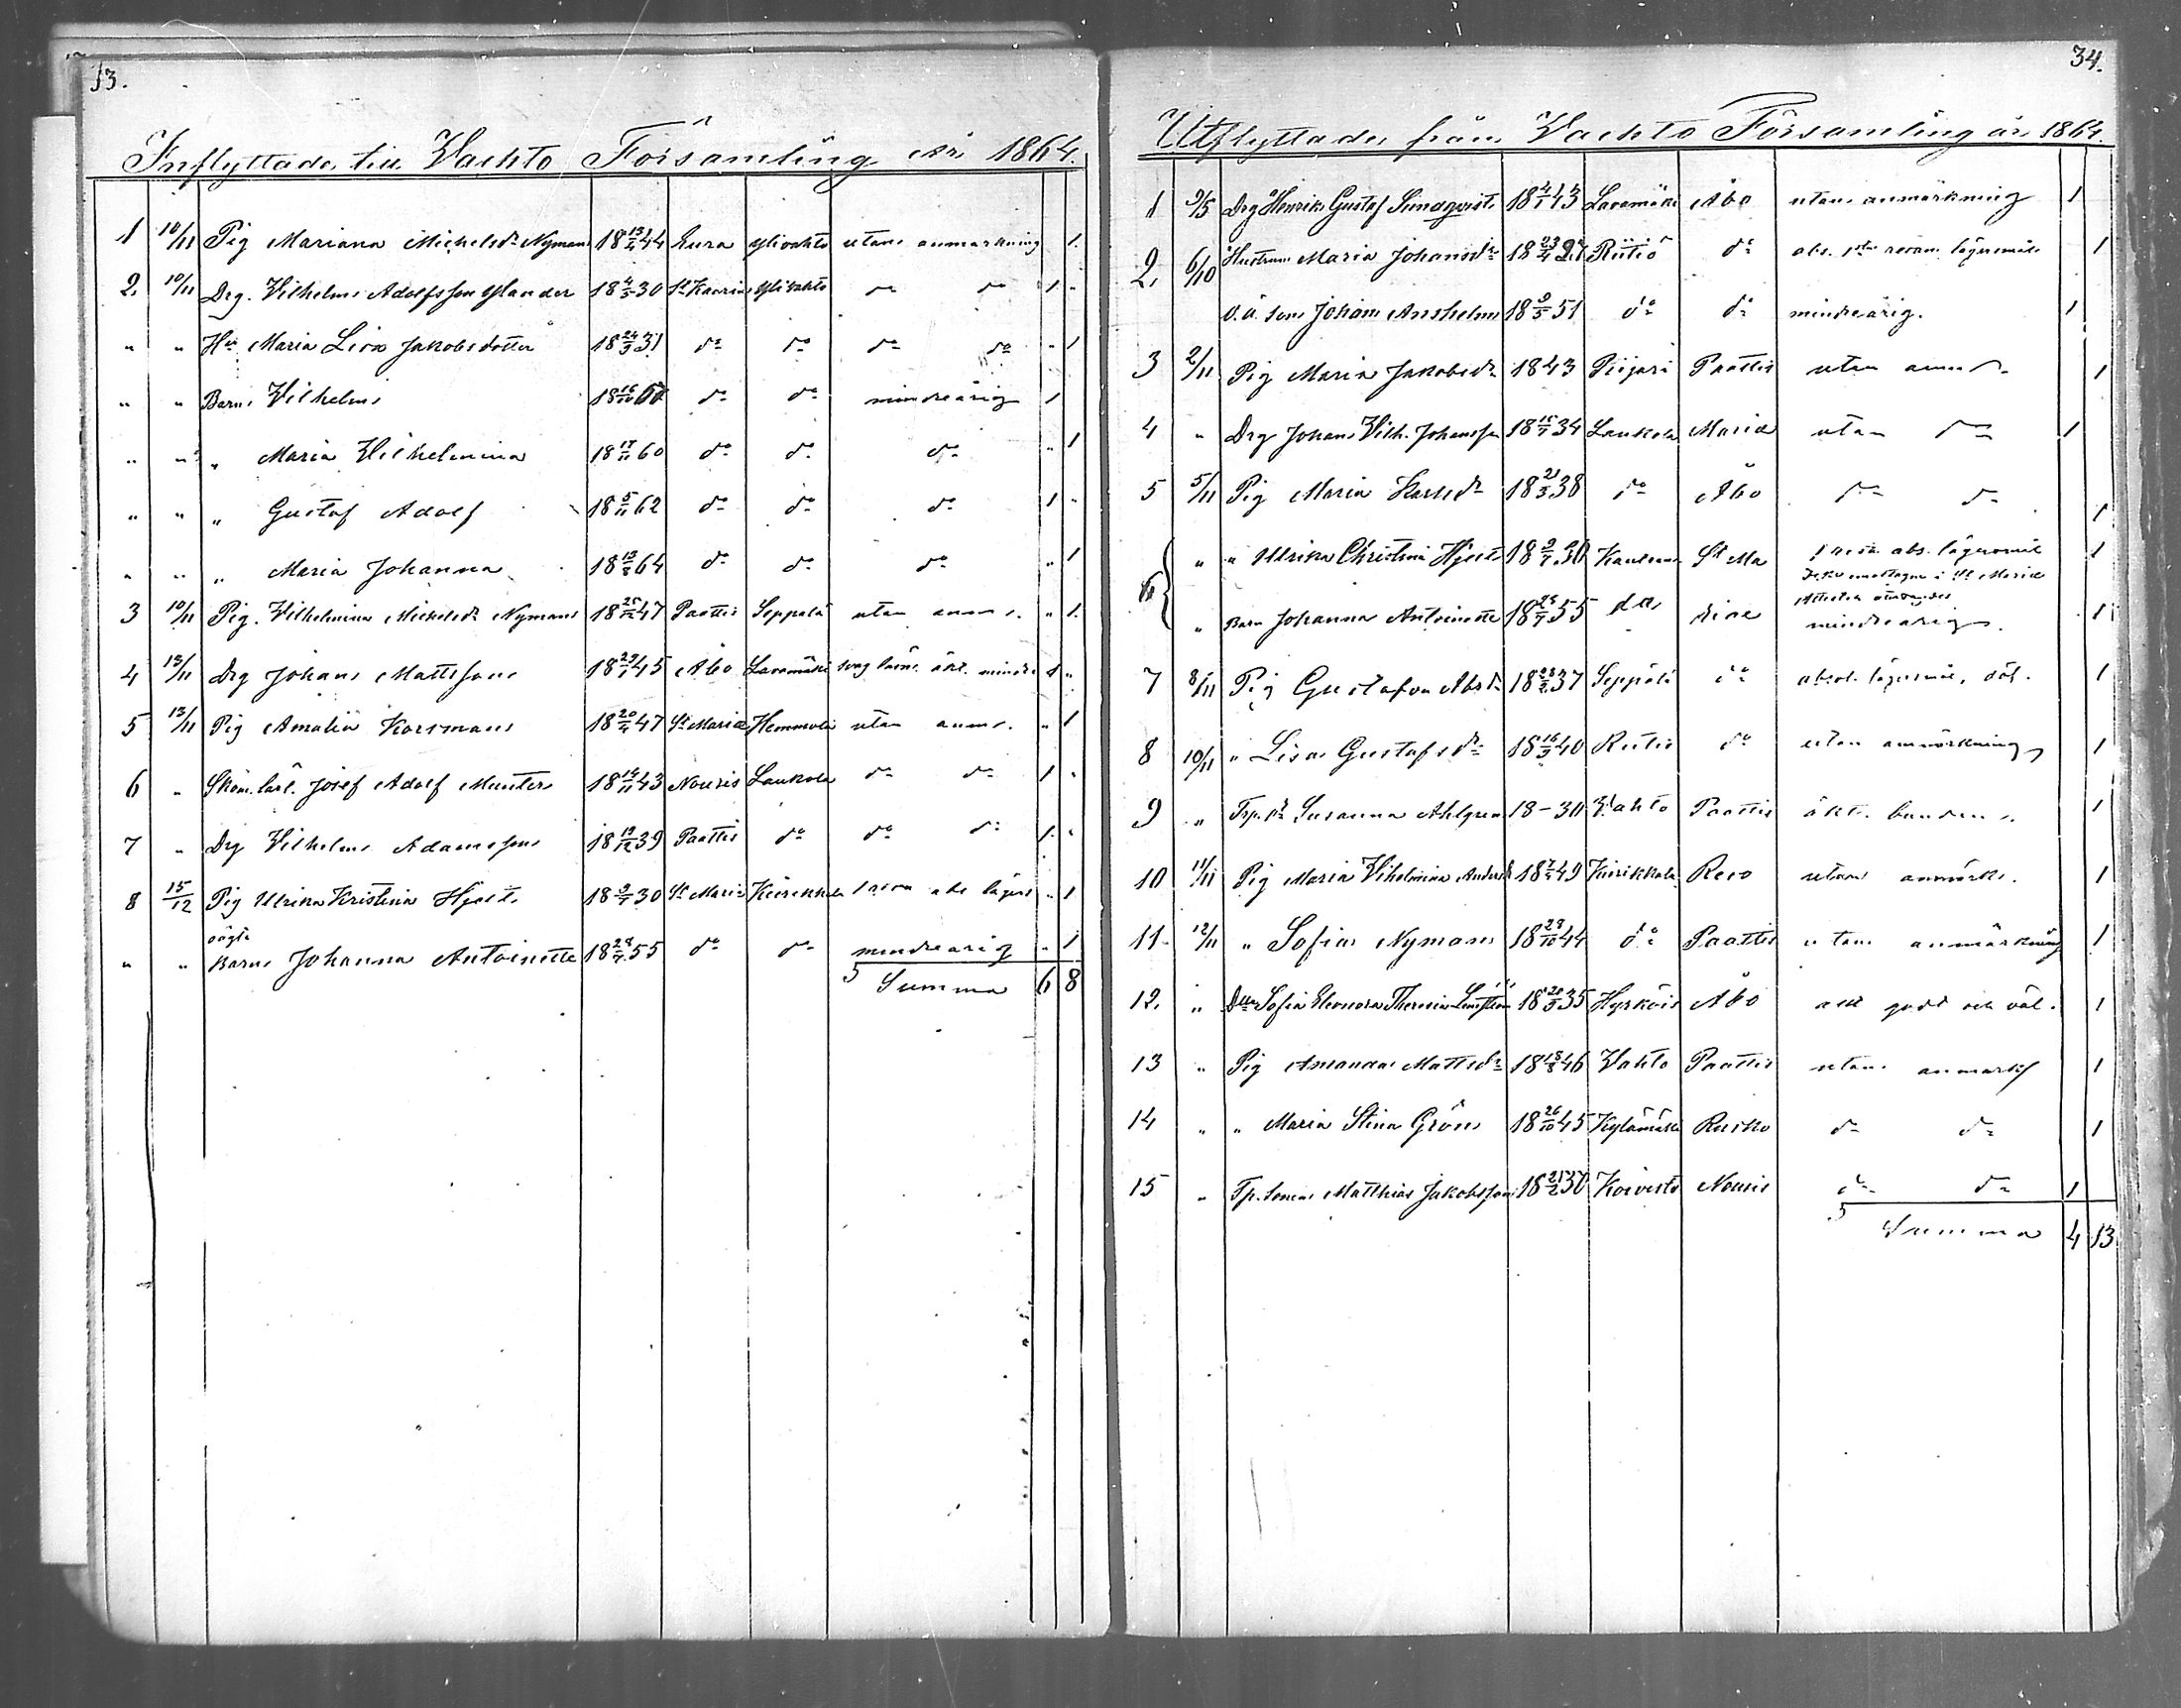 33.
Inflyttade till Vachto Församling År 1864.
1 10/11 Pig Mariana Michelsdr Nyman 18 13/4 44 Eura Ylivahto utan anmärkning 1.
2. 10/11 Drg. Vilhelm Adolfsson Ylander 18 4/5 30 St Karins Ylivahto do do 1 "
" " Hu Maria Lisa Jakobsdotter 18 24/3 31 do do do do " 1
" " Barn Vilhelm do do mindreårig 1
" " " Maria Vilhelmina 18 17/11 60 do do do " 1
" " " Gustaf Adolf 18 5/11 62 do do do 1 "
" " " Maria Johanna 18 13/3 64 do do do " 1
3 10/11 Pig. Vilhelmina Michelsdr Nyman 47 Paattis Seppälä utan anm. " 1.
4 13/11 Drg Johan Mattsson 18 29/1 45 Åbo Lavamäki svag läsn. mindre 1 "
5 13/11 Pig Amalia Korsman 18 20/4 47 St Mariæ Hemmola utan anm. " 1
6 " Skom. lärl. Josef Adolf Munter 18 14/11 43 Nousis Laukola do do 1 "
7 " Drg Vilhelm Adamsson 18 19/12 39 Paattis do do do 1. "
8 15/12 Pig Ulrika Kristina Hjelt 18 9/7 30 St Mariæ Keirikkala " 1
oägta
" " Barn Johanna Antoinette 18 28/7 55 do do mindreårig " 1
Summa 6 8
34.
Utflyttade från Vachto Församling år 1864.
1 9/5 Drg Henrik Gustaf Sundqvist 18 4/1 43 Lavamäki Åbo utan anmärkning 1
2. 6/10 Hustrun Maria Johansdr 18 23/4 27 Riitiö do abs. lägersmål 1
o.ä. son Johan Anshelm 18 9/5 51 do do mindreårig. 1
3 2/11 Pig Maria Jakobsdr 1843 Piijari Paattis utan anm. 1
4 " Drg Johan Vilh. Johansson 18 15/7 34 Laukola Mariæ utan do 1
5 5/11 Pig Maria Karlsdr 18 21/3 38 do Åbo do do 1
6 " " Ulrika Christina Hjelt 18 9/7 30 St Ma abs. lägersmål 1
i St Mariæ
" Barn Johanna Antoinette 18 28/7 55 do riae mindreårig. 1
7 8/11 Pig Gustafva Absdr 18 28/2 37 Seppälä do absol. lägersmål, 1
8 10/11 " Lisa Gustafsdr 18 16/3 40 Riitiö do utan anmärkning 1
9 " Susanna Ahlgren 18-30 Vahto Paattis äkt. bunden 1
10 11/11 Pig Maria Vilhelmina 49 Keirikkala utan anmärk. 1
11 12/11 " Sofia Nyman 18 29/10 44 do Paattis utan anmärkning 1
12. " Sofia Eleonora Theresia 18 20/3 35 Hyrköis Åbo allt godt och väl. 1
13 " Pig Amanda Mattsdr 18 18/8 46 Vahto Paattis utan anmärk 1
14 " " Maria Stina Grön 18 26/10 45 Kylämäki Rusko do do 1
15 " Tp. sonen Matthias Jakobsson 18 21/2 30 Koivisto Nousis do do 1
Summa 4 13